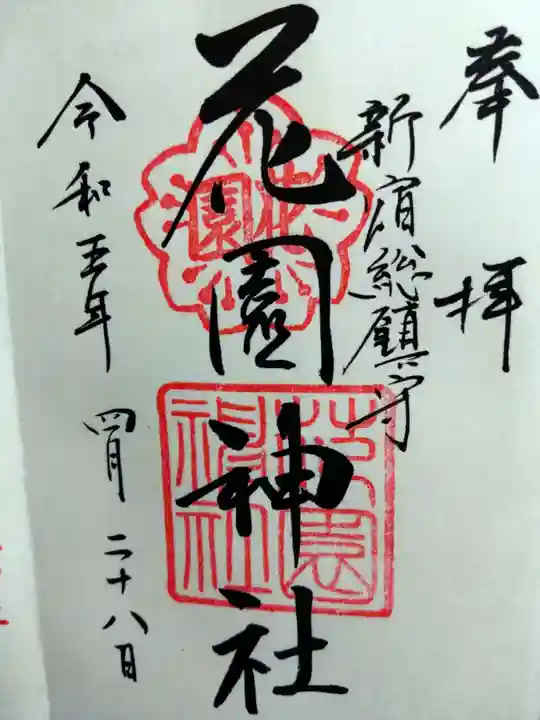 奉拝
新宿総鎮守
花園神社
花園
花園神社
令和五年 四月 二十八日